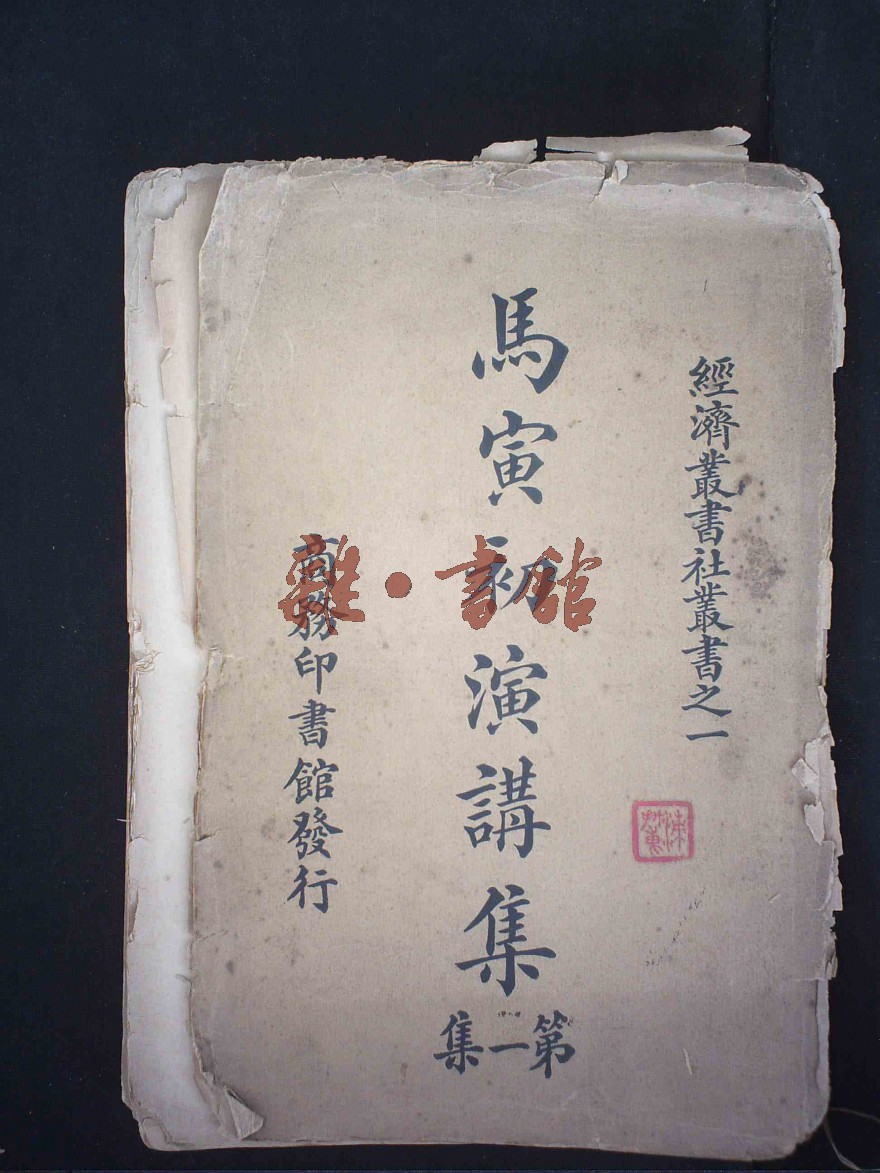 經濟叢書社叢書之一
馬寅初演講集
第一集
商務印書館發行
雜·書館